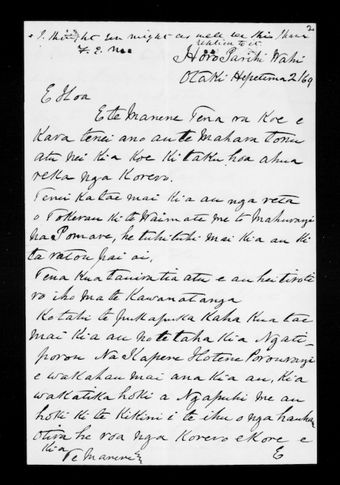 I thought you might as well see this
F. E. M
Horo Pariki Wahi
Otaki Hepetema 2/69
E Hoa
E te Manene Tena ra Koe e
Kara tenei ano au te Mahara tonu
atu nei Kia Koe Ki taku hoa ahua
reka nga Korero.
Tenei Ka tae mai Kia au nga reta
o Tokerau Ki te Waimate me te Mahurangi
na Pomare, he tuhituhi mai Kia au Ki
ta ratou pai ai,
Tena Kua tauira tia atu e au hei tirotiro
ro iho ma te Kawanatanga
Ko tahi te pukapuka Kaha Kua tae
mai Kia au no te taha Kia Ngati-
porou Na Hapene Hotene Porourangi
e wakahau mai ana Kia au, Kia
wakatika hoki a Ngapuhi me au
hoki Ki te Kikini i te ihu o nga hauhau
otira he roa nga Korero e Kore e
Kia
Te Manene
E